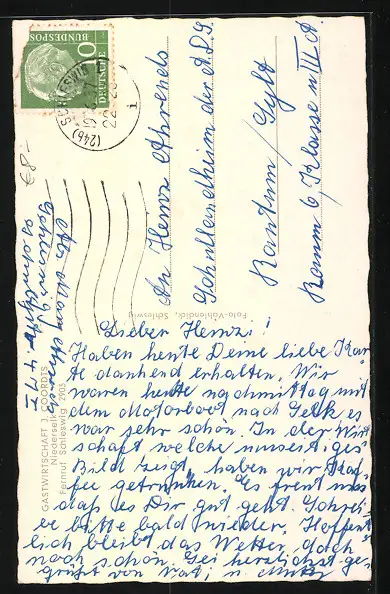 DEUTSCHE
BUNDESPOST
10
(24b) SCHLESWIG
An Heinz Ahrends
Schullandheim der A.D.S.
Rantum / Sylt
Raum 6, Klasse
Foto-Vahlendick, Schleswig
GASTWIRTSCHAFT J. COORDES
Fernruf Schleswig 2903
Lieber Heinzi!
Haben heute Deine liebe Kar
te dankend erhalten. Wir
waren heute nachmittag mit
dem Motorboot nach es
war sehr schön. In der Wirt
schaft welche umseitiges
Bild zeigt, haben wir Kaf
fee getrunken. Es freut uns
daß es Dir gut geht. Schrei
be bitte bald wieder. Hoffent
lich bleibt das Wetter doch
noch schön. Sei herzlichst ge
grüßt von Vati u. Mutti